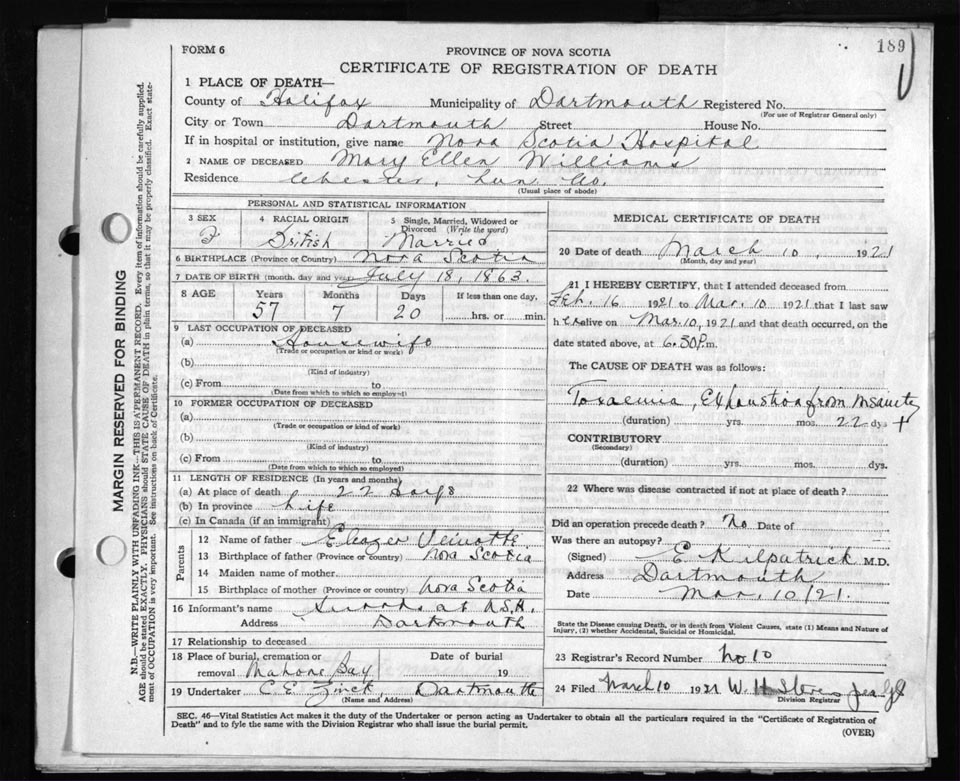 189
FORM 6
PROVINCE OF NOVA SCOTIA
CERTIFICATE OF REGISTRATION OF DEATH
1 PLACE OF DEATH—
County of Halifax Municipality of Dartmouth Registered No.
(For use of Registrar General only)
City or Town Dartmouth Street House No.
If in hospital or institution, give name Nova Scotia Hospital
2 NAME OF DECEASED Mary Ellen Williams
Residence Chester, Lun Co.
(Usual place of abode)
PERSONAL AND STATISTICAL INFORMATION
3 SEX F
4 RACIAL ORIGIN British
5 Single, Married, Widowed or Divorced (Write the word) Married
6 BIRTHPLACE (Province or Country) Nova Scotia
7 DATE OF BIRTH (month, day and year) July 18, 1863.
8 AGE Years Months Days If less than one day,
57 7 20 hrs. or min.
9 LAST OCCUPATION OF DECEASED
(a) Housewife
(Trade or occupation or kind or work)
(b)
(Kind of industry)
(c) From to
(Date from which to which so employed)
10 FORMER OCCUPATION OF DECEASED
(a)
(Trade or occupation or kind of work)
(b)
(Kind of industry)
(c) From to
(Date from which to which so employed)
11 LENGTH OF RESIDENCE (In years and months)
(a) At place of death 22 days
(b) In province Life
(c) In Canada (if an immigrant)
Parents
12 Name of father Eleazer Veinotte
13 Birthplace of father (Province or country) Nova Scotia
14 Maiden name of mother
15 Birthplace of mother (Province or country) Nova Scotia
16 Informant's name Records at N.S.H.
Address Dartmouth
17 Relationship to deceased
18 Place of burial, cremation or removal Mahone Bay Date of burial 19
19 Undertaker C. E. Zinck, Dartmouth
(Name and Address)
MEDICAL CERTIFICATE OF DEATH
20 Date of death March 10, 1921
(Month, day and year)
21 I HEREBY CERTIFY, that I attended deceased from
Feb. 16 1921 to Mar. 10 1921 that I last saw
her alive on Mar. 10, 1921 and that death occurred, on the
date stated above, at 6.30 P.m.
The CAUSE OF DEATH was as follows:
Toxaemia, Exhaustion from Insanity
(duration) yrs. mos. 22 dys +
CONTRIBUTORY
(Secondary)
(duration) yrs. mos. dys.
22 Where was disease contracted if not at place of death?
Did an operation precede death? No Date of
Was there an autopsy?
(Signed) E. Kilpatrick M.D.
Address Dartmouth
Date Mar. 10/21.
State the Disease causing Death, or in death from Violent Causes, state (1) Means and Nature of
Injury, (2) whether Accidental, Suicidal or Homicidal.
23 Registrar's Record Number No 10
24 Filed March 10 1921 W. H.
Division Registrar
SEC. 46—Vital Statistics Act makes it the duty of the Undertaker or person acting as Undertaker to obtain all the particulars required in the "Certificate of Registration of
Death" and to fyle the same with the Division Registrar who shall issue the burial permit.
(OVER)
MARGIN RESERVED FOR BINDING
N.B.—WRITE PLAINLY WITH UNFADING INK—THIS IS A PERMANENT RECORD. Every item of information should be carefully supplied.
AGE should be stated EXACTLY. PHYSICIANS should STATE CAUSE OF DEATH in plain terms, so that it may be properly classified. Exact state-
ment of OCCUPATION is very important. See instructions on back of Certificate.